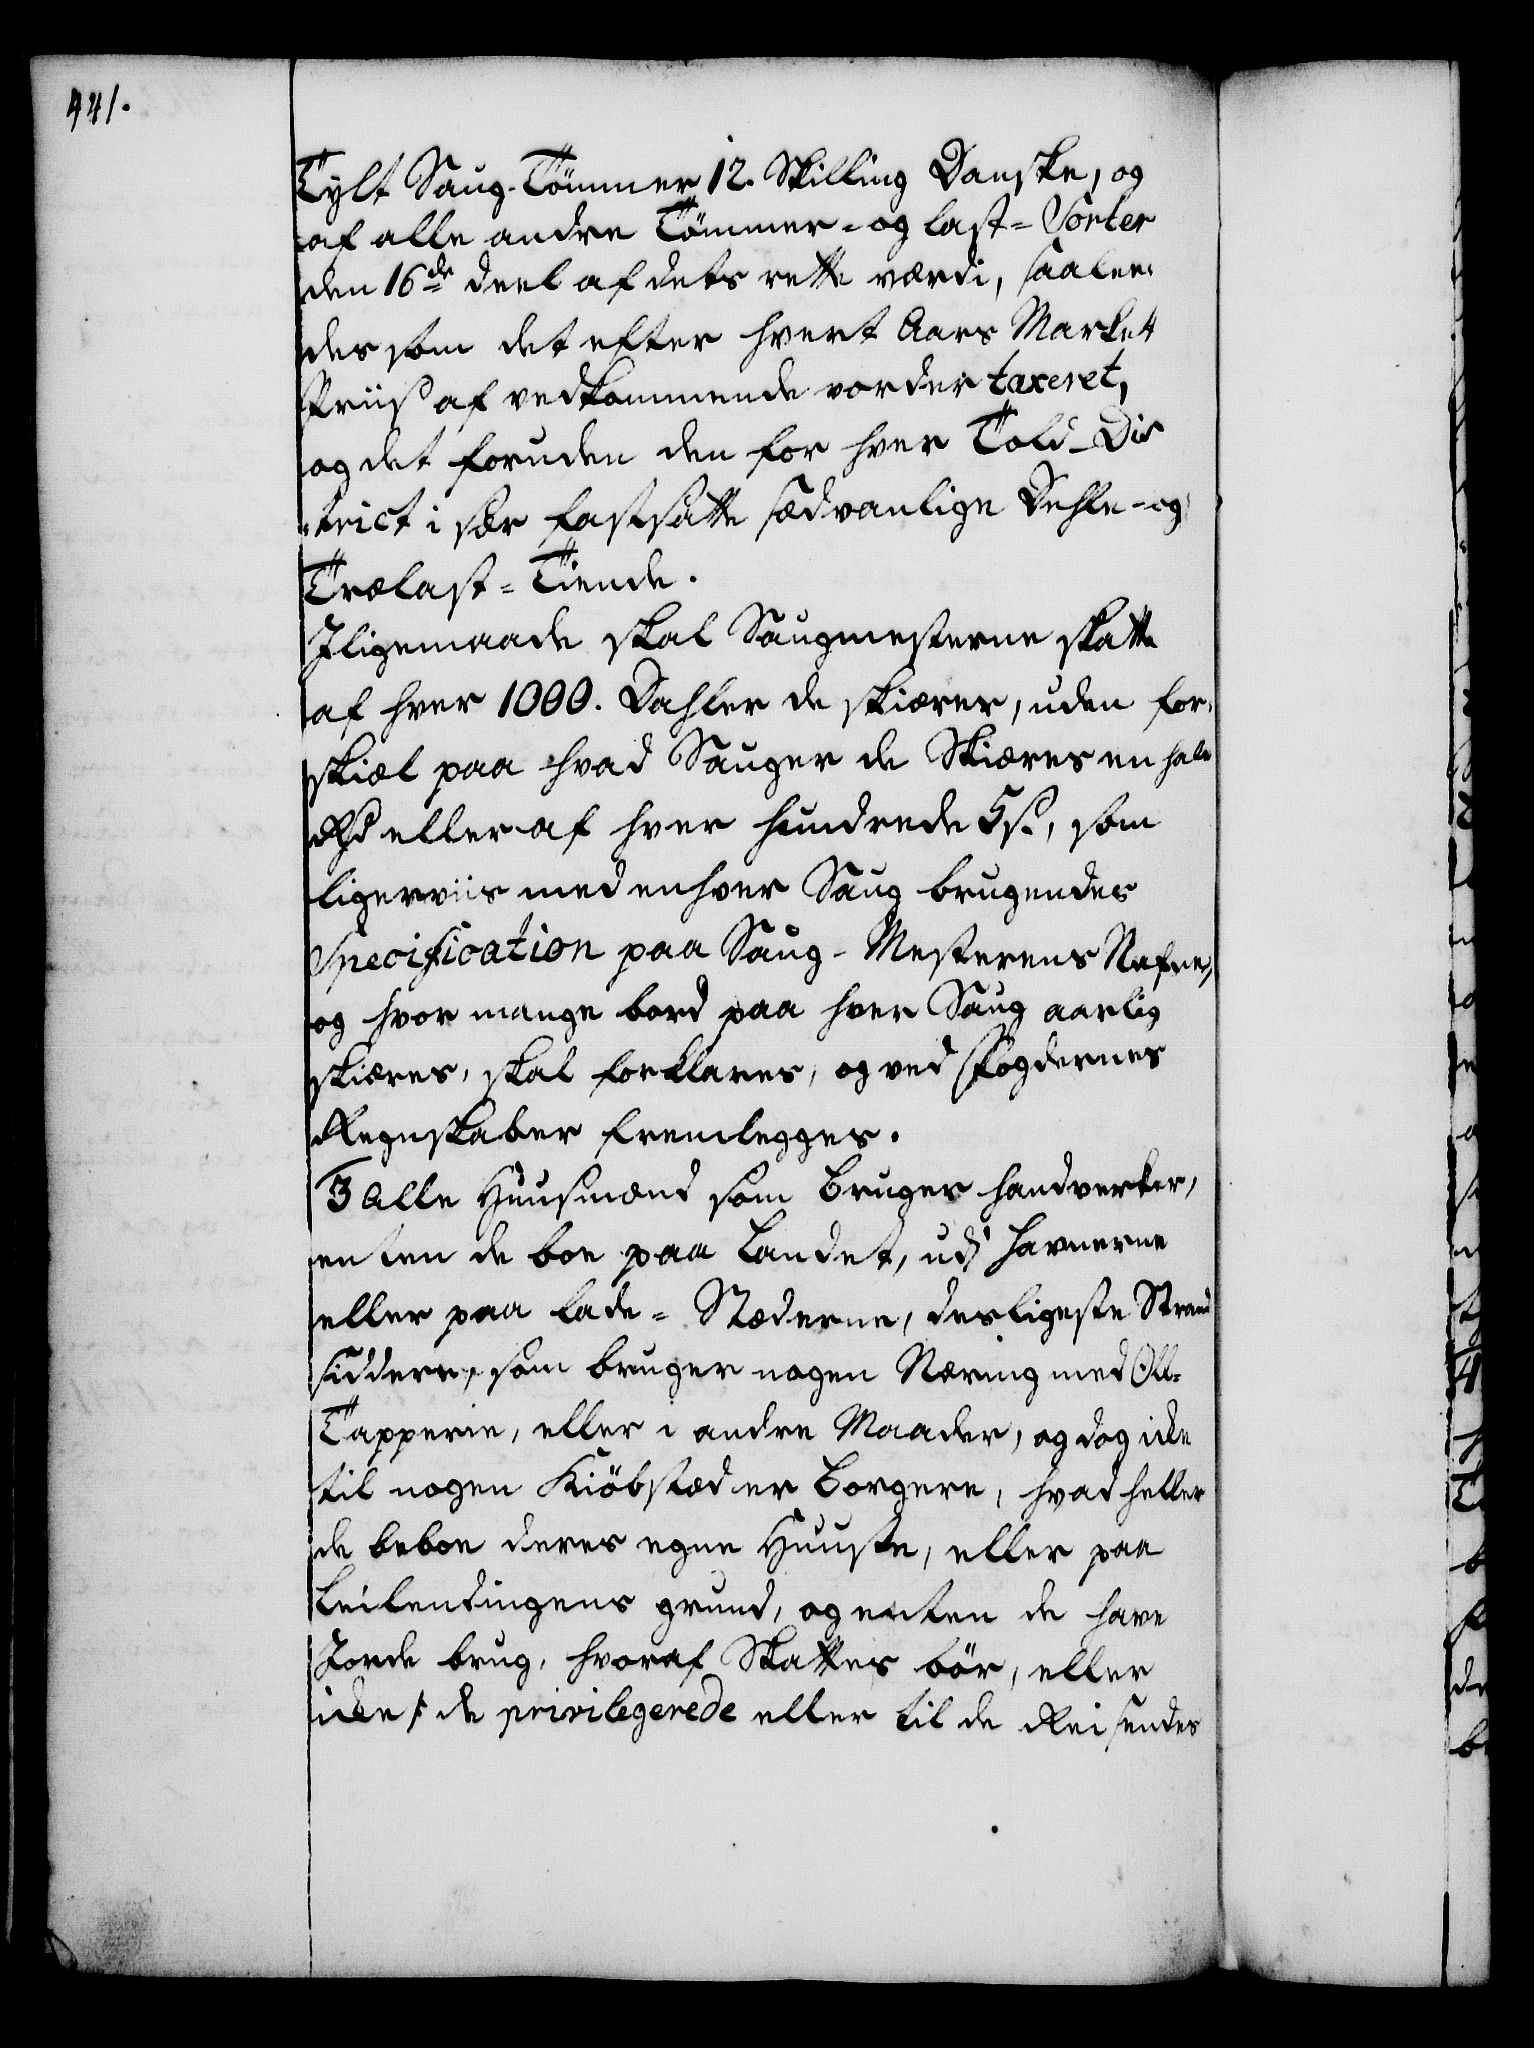 441.
Tylt Saug-Tömmer 12. Skilling Danske, og
af alle andre Tömmer- og last-Sorter
den 16de deel af dets rette værdi, saalee-
des som det efter hvert Aars Market
Priis af vedkommende vorder taxeret,
og det foruden den for hver Told-Dis
trict i sær fastsatte sædvanlige Dehle- og
Trælast-Tiende.
Iligemaade skal Saugmesterne skatte
af hver 1000. Dahler de skiærer, uden for-
skiæl paa hvad Sauger de Skiæres en halv
Rd eller af hver hundrede 5 s., som
ligerviis med enhver Saug brugendes
Specification paa Saug-Mesterens Nafne,
og hvor mange bord paa hver Saug aarlig
skiæres, skal forklares, og ved Fogdernes
Regnskaber fremlegges.
3 Alle Huusmænd som Bruger handverker,
enten de boe paa Landet, udj Havnerne
eller paa Lade-Stæderne, desligeste Strand
siddere, som bruger nogen Næring med Öll-
Tapperie, eller i andre Maader, og dog icke
til nogen Kiöbstæd er Borgere, hvad heller
de beboe deres egne Huuse, eller paa
Leilendingens grund, og enten de have
Jorde brug, hvoraf Skattes bör, eller
icke /: de privilegerede eller til de Reisendes